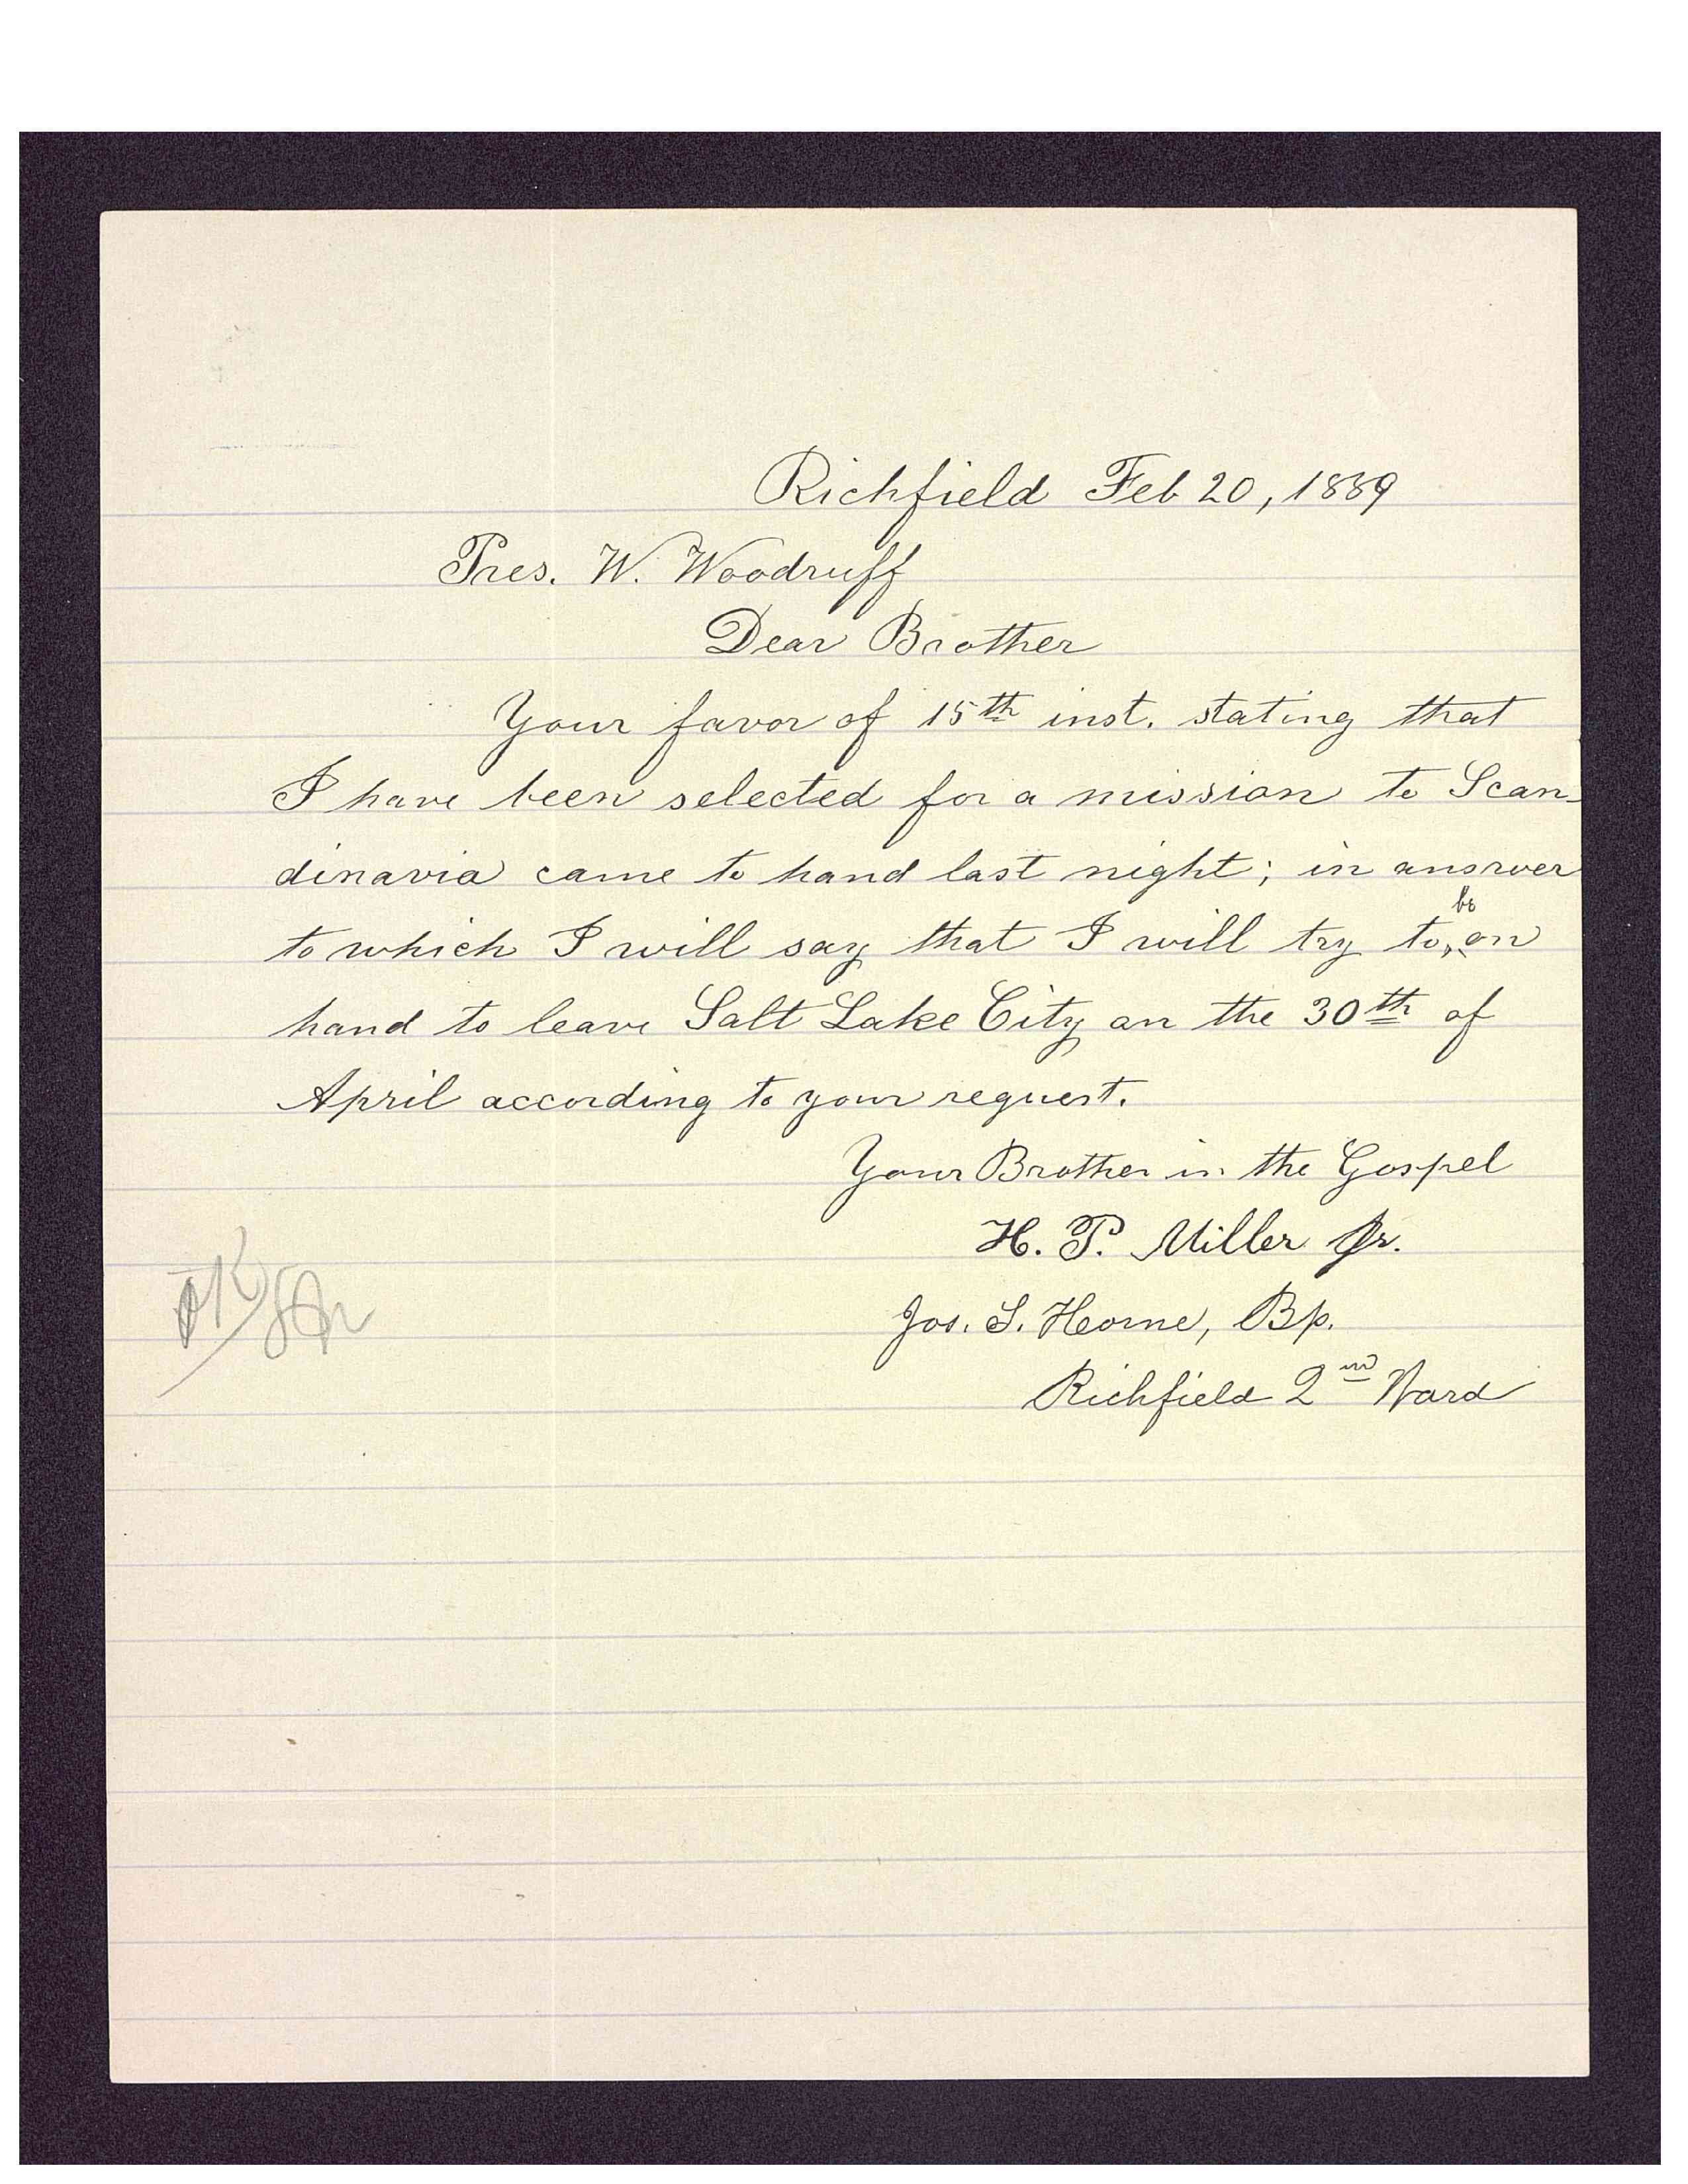 Richfield Feb 20, 1889
Pres. W. Woodruff
Dear Brother
Your favor of 15th inst. stating that
I have been selected for a mission to Scan-
dinavia came to hand last night; in answer
to which I will say that I will try to be on
hand to leave Salt Lake City on the 30th of
April according to your request.
Your Brother in the Gospel
H. P. Miller Jr.
Jos. S. Horne, Bp.
Richfield 2nd Ward